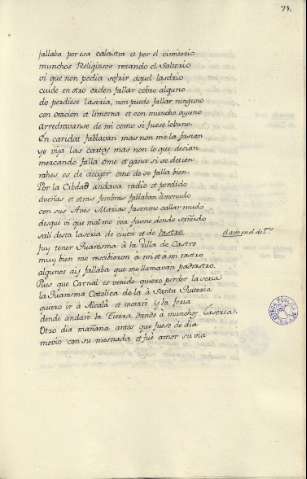 79.
fallaba por esa calostra et por el dimiterio
munchos Religiosos rezando el Salterio
vi que non podia sofrir aquel lazerio
cuidé en otro orden fallar cobro alguno
do perdiese laseria, non pude fallar ninguno
con oracion et limosna et con muncho ayuno
arredrabanse de mi como si fuese lobuno
En caridat fallaban mas non me la fasien
yo vija las caras mas non lo que desian
mercando falla ome et gana si se detien
rahes es de coger ome do se falla bien
Por la Cibdad andava radio et perdido
dueñas et otras fembras fallaban amenudo
con sus Ave Marias fasianme callar mudo
desque vi que mal me iva fuime donde reñido
salí desta laseria de cuita et de lastro
fuy tener Quaresma à la Villa de Castro
muy bien me recibieron a mi et a mi rastro
algunos ay fallaba que me llamavan padrastro
Pues que Carnal es venido quiero perder laseria
la Quaresma Catolica do la à Santa Quiteria
quiero ir à Alcalá et moraré y la feria
dende andaré la Tierra dando à munchos laseria
Otro dia mañana antes que fuese de dia
movio con su mesnada et fué amor su via